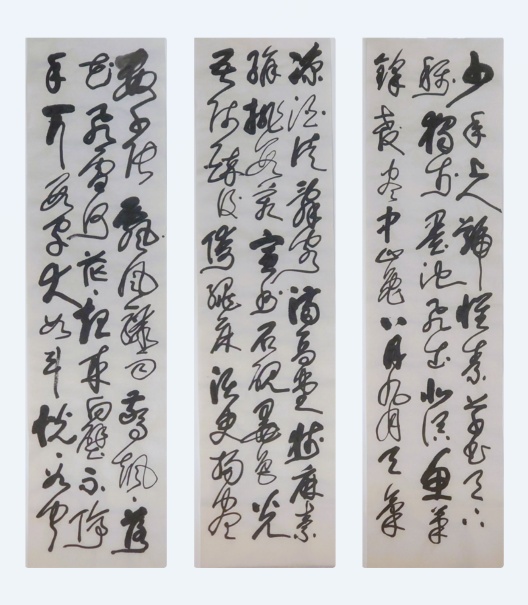 少年上人號懷素草書天下
稱獨步墨池飛出北溟魚筆
鋒殺盡中山兔八月九月天氣
涼酒徒辭客滿高堂牋麻素
絹排數箱宣州石硯墨色光
吾師醉後倚繩床須臾掃盡
數千張飄風驟雨驚颯〻落
花飛雪何茫〻起來向壁不停
手一行數字大如斗恍〻如聞